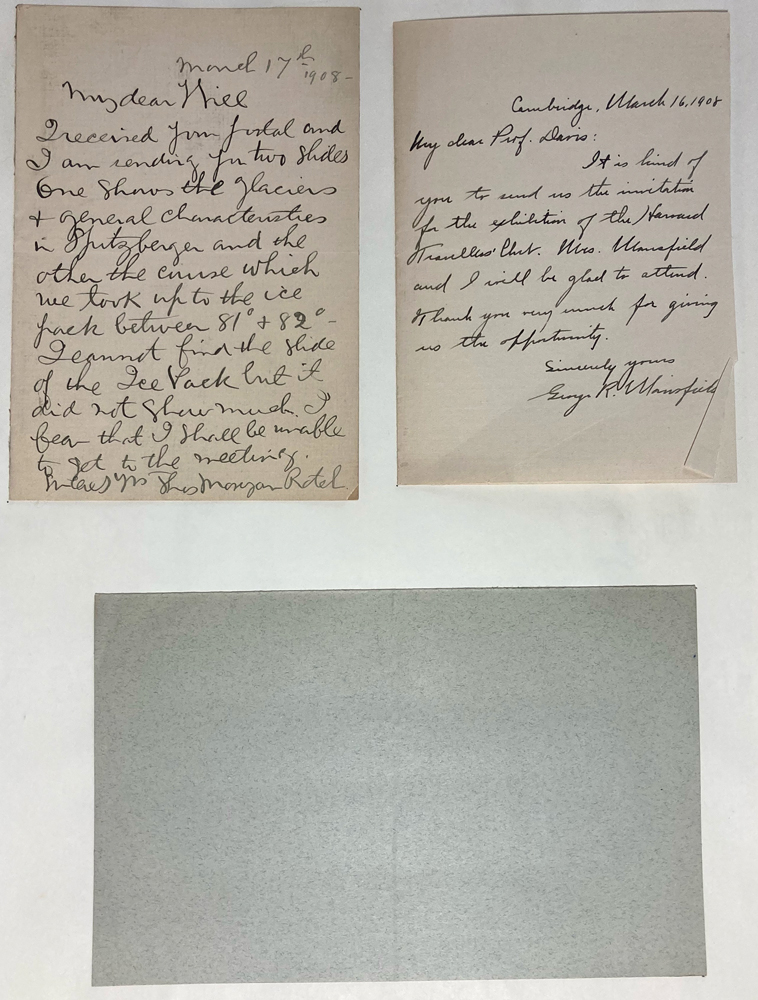 March 17th
1908-
My dear Will
I received your postal and
I am sending you two slides
One shows the glaciers
& general characteristics
in Spitzbergen and the
other the course which
we took up to the ice
pack between 81° & 82° -
I cannot find the slide
of the Ice Pack but it
did not show much. I
fear that I shall be unable
to get to the meeting.
Morgan Rotch.
Cambridge, March 16, 1908
My dear Prof. Davis:
It is kind of
you to send us the invitation
for the exhibition of the Harvard
Travellers' Club. Mrs. Mansfield
and I will be glad to attend.
Thank you very much for giving
us the opportunity.
Sincerely yours
George R. Mansfield